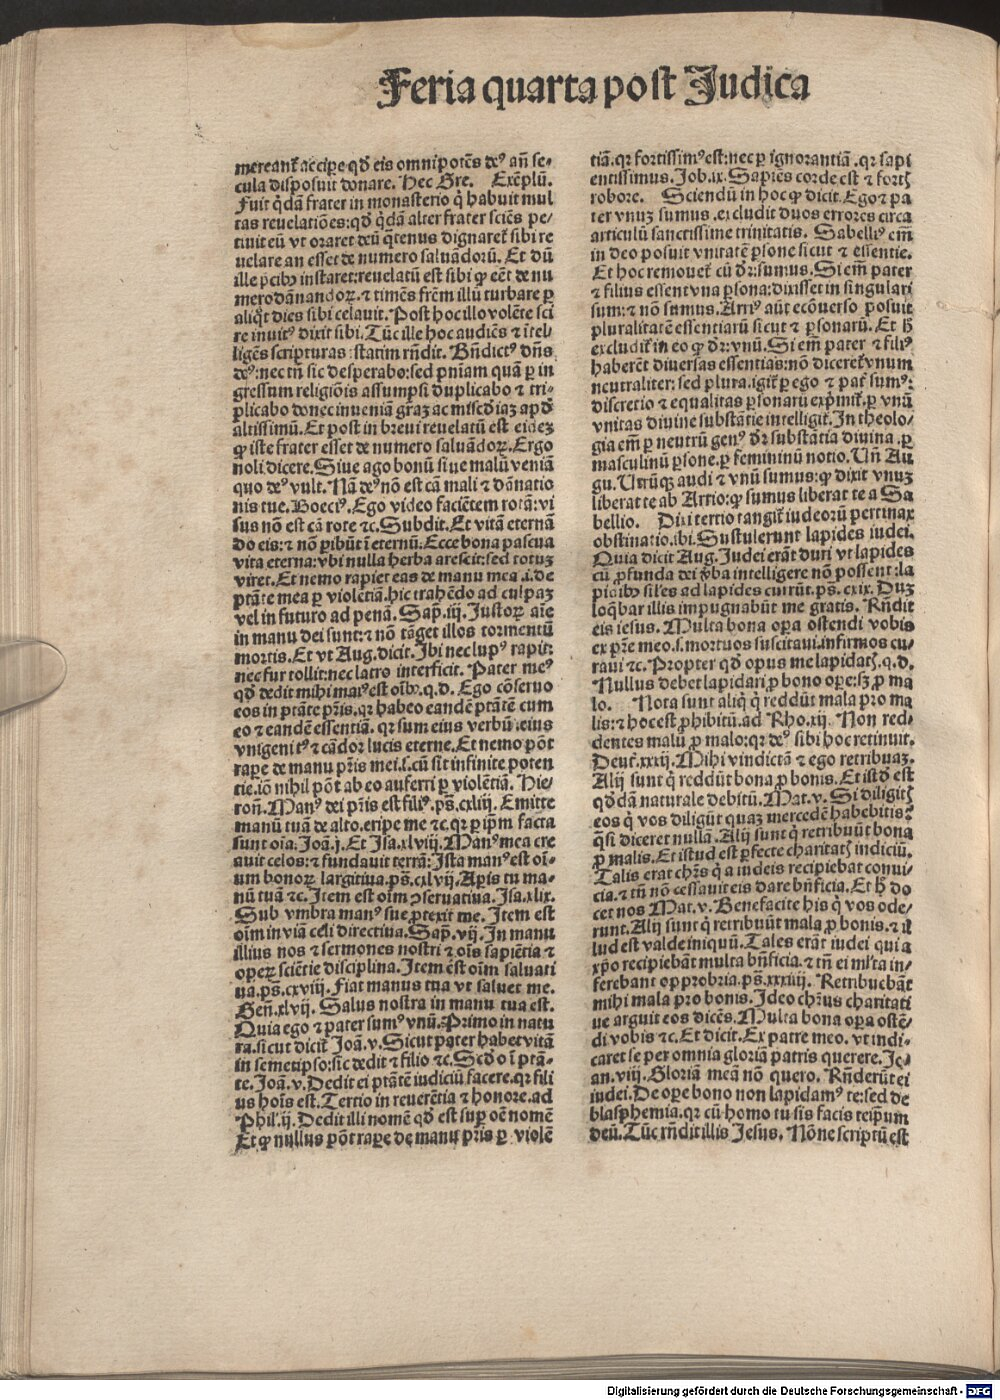 Feria quarta post Judica
mereant̄ accipe qd̄ eis omnipotēs deꝰ añ se-
cula disposuit donare. Hec Gre. Exēplū.
Fuit q̇dā frater in monasterio q̇ habuit mul
tas reuelatiōes: qd̄ q̇dā alter frater sciēs pe-
tiuit eū vt oraret deū q̄tenus dignaret̄ sibi re
uelare an esset de numero saluādorū. Et dū
ille p̄cibꝰ instaret: reuelatū est sibi ꝙ eēt de nu
mero dānandoꝝ. ⁊ timēs frēm illū turbare ꝑ
aliq̄t dies sibi celauit. Post hoc illo volēte sci
re inuitꝰ dixit sibi. Tūc ille hoc audiēs ⁊ ītel-
ligēs scripturas: statim rn̄dit. Bn̄dictꝰ dn̄s
deꝰ: nec tn̄ sic desperabo: sed pn̄iam quā ꝑ in
gressum religiōis assumpsi duplicabo ⁊ tri-
plicabo donec inueniā grāꝫ ac misc̄diaꝫ apd̄
altissimū. Et post in breui reuelatū est eideꝫ
ꝙ iste frater esset de numero saluādoꝝ. Ergo
noli dicere. Siue ago bonū siue malū veniā
quo deꝰ vult. Nā deꝰ nō est cā mali ⁊ dānatio
nis tue. Boeciꝰ. Ego video faciētem rotā: vi
sus nō est cā rote ⁊c. Subdit. Et vitā eternā
do eis: ⁊ nō ꝑibūt ī eternū. Ecce bona pascua
vita eterna: vbi nulla herba arescit: sed totuꝫ
viret. Et nemo rapiet eas de manu mea .i. de
ptāte mea ꝑ violētiā. hic trahēdo ad culpaꝫ
vel in futuro ad penā. Sap. iij. Justoꝝ aīe
in manu dei sunt: ⁊ nō tāget illos tormentū
mortis. Et vt Aug. dicit. Ibi nec lupꝰ rapit:
nec fur tollit: nec latro interficit. Pater meꝰ
qd̄ dedit mihi maiꝰ est oībꝰ. q.d. Ego cōseruo
eos in ptāte pr̄is. qr habeo eandē ptātē cum
eo ⁊ eandē essentiā. qr sum eius verbū. eius
vnigenitꝰ ⁊ cādor lucis eterne. Et nemo pōt
rape de manu pr̄is mei .s. cū sit infinite poten
tie. iō nihil pōt ab eo auferri ꝑ violētiā. Hie-
ron̄. Manꝰ dei pr̄is est filiꝰ. ps̄. cxliij. Emitte
manū tuā de alto. eripe me ⁊c. qr ꝑ ip̄m facta
sunt oīa. Joā. j. Et Isa. xlviij. Manꝰ mea cre
auit celos: ⁊ fundauit terrā: Ista manꝰ est oī-
um bonoꝝ largitiua. ps̄. cxlvij. Apis tu ma-
nū tuā ⁊c. Item est oīm ꝯseruatiua. Isa. xlix.
Sub vmbra manꝰ sue ꝓtexit me. Item est
oīm in viā celi directiua. Sap̄. vij. In manu
illius nos ⁊ sermones nostri ⁊ oīs sapiētia ⁊
opeꝝ sciētie disciplina. Item est oīm saluati
ua. ps̄. cxviij. Fiat manus tua vt saluet me.
Gen̄. xlvij. Salus nostra in manu tua est.
Quia ego ⁊ pater sumꝰ vnū. Primo in natu
ra. sicut dicit̄ Joā. v. Sicut pater habet vitā
in semetipso: sic dedit ⁊ filio ⁊c. Scd̄o ī ptā-
te. Joā. v. Dedit ei ptātē iudiciū facere. qr fili
us hoīs est. Tertio in reuerētia ⁊ honore. ad
Phil'. ij. Dedit illi nomē qd̄ est suꝑ oē nomē
Et ꝙ nullus pōt rape de manu pr̄is ꝑ violē
tiā. qr fortissimꝰ est: nec ꝑ ignorantiā. qr sapi
entissimus. Job. ix. Sapiēs corde est ⁊ fortꝭ
robore. Sciendū in hoc ꝙ dicit. Ego ⁊ pa
ter vnuꝫ sumus. excludit duos errores circa
articulū sanctissime trinitatis. Sabelliꝰ em̄
in deo posuit vnitatē ꝑsone sicut ⁊ essentie.
Et hoc remouet̄ cū dr̄: sumus. Si em̄ pater
⁊ filius essent vna ꝑsona: dixisset in singulari
sum: ⁊ nō sumus. Arriꝰ aūt ecōuerso posuit
pluralitatē essentiarū sicut ⁊ ꝑsonarū. Et hͦ
excludit̄ in eo ꝙ dr̄: vnū. Si em̄ pater ⁊ filiꝰ
haberēt diuersas essentias: nō diceret̄ vnum
neutraliter: sed plura. igit̄ ꝑ ego ⁊ pat̄ sumꝰ:
discretio ⁊ equalitas ꝑsonarū exprimit̄. ꝑ vnū
vnitas diuine substātie intelligit̄. In theolo-
gia em̄ ꝑ neutrū genꝰ dr̄ substātia diuina. ꝑ
masculinū ꝑsone. ꝑ femininū notio. Vn̄ Au
gu. Utrūqꝫ audi ⁊ vnū sumus: ꝙ dixit vnuꝫ
liberat te ab Arrio: ꝙ sumus liberat te a Sa
bellio. Dixi tertio tangit̄ iudeorū pertinax
obstinatio. ibi. Sustulerunt lapides iudei.
Quia dicit Aug. Judei erāt duri vt lapides
cū ꝓfunda dei v̄ba intelligere nō possent: la
pidibꝰ sil'es ad lapides currūt. ps̄. cxix. Duꝫ
loq̄bar illis impugnabūt me gratis. Rn̄dit
eis iesus. Multa bona oꝑa ostendi vobis
ex pr̄e meo. s. mortuos suscitaui. infirmos cu-
raui ⁊c. Propter qd̄ opus me lapidatꝭ. q.d.
Nullus debet lapidari ꝓ bono oꝑe: sꝫ ꝓ ma
lo. Nota sunt aliq̇ q̇ reddūt mala pro ma
lis: ⁊ hoc est ꝓhibitū. ad Rho. xij. Non red-
dentes malū ꝓ malo: qr deꝰ sibi hoc retinuit.
Deut̄. xxxij. Mihi vindictā ⁊ ego retribuaꝫ.
Alij sunt q̇ reddūt bona ꝓ bonis. Et istd̄ est
qd̄dā naturale debitū. Mat. v. Si diligitꝭ
eos q̇ vos diligūt quaꝫ mercedē habebitis?
q̄si diceret nullā. Alij sunt q̇ retribuūt bona
ꝓ malis. Et istud est ꝑfecte charitatꝭ indiciū.
Talis erat chr̄s q̇ a iudeis recipiebat conui-
cia. ⁊ tn̄ nō cessauit eis dare bn̄ficia. Et hͦ do
cet nos Mat. v. Benefacite his q̇ vos ode-
runt. Alij sunt q̇ retribuūt mala ꝓ bonis. ⁊ il
lud est valde iniquū. Tales erāt iudei qui a
xp̄o recipiebāt multa bn̄ficia. ⁊ tn̄ ei ml'ta in-
ferebant opprobria. ps̄. xxxiiij. Retribuebāt
mihi mala pro bonis. Ideo chr̄us charitati
ue arguit eos dicēs. Multa bona oꝑa ostē-
di vobis ⁊c. Et dicit. Ex patre meo. vt indi-
caret se per omnia gloriā patris querere. Jo-
an. viij. Gloriā meā nō quero. Rn̄derūt ei
iudei. De oꝑe bono non lapidamꝰ te: sed de
blasphemia. qr cū homo tu sis facis teip̄um
deū. Tūc rn̄dit illis Jesus. Nōne scriptū est
Digitalisierung gefördert durch die Deutsche Forschungsgemeinschaft - DFG